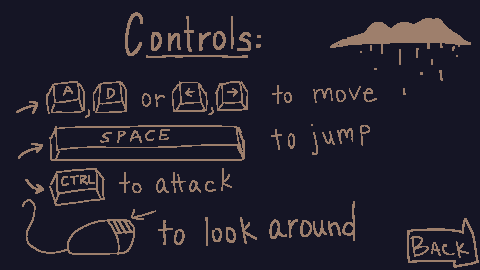 Controls:
A, D or ←, → to move
SPACE to jump
CTRL to attack
to look around
BACK